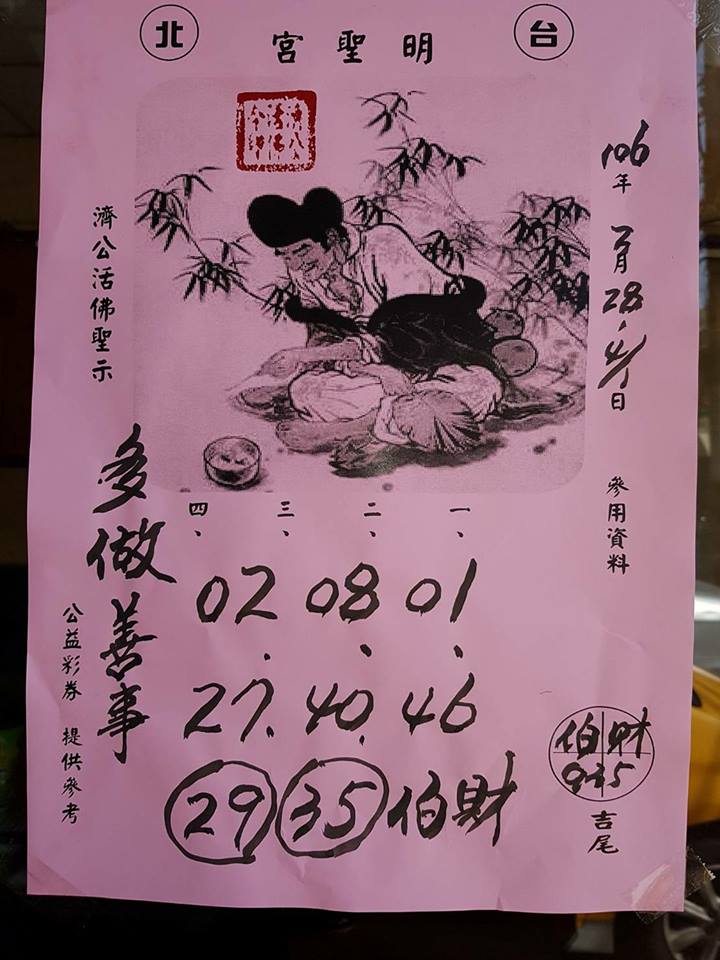 台北
明聖宮
106年
月28.
日
參用資料
一、二、三、四、
02 08 01
27. 40. 46
29 35 伯財
伯財
吉尾
濟公活佛聖示
多做善事
公益彩券 提供參考